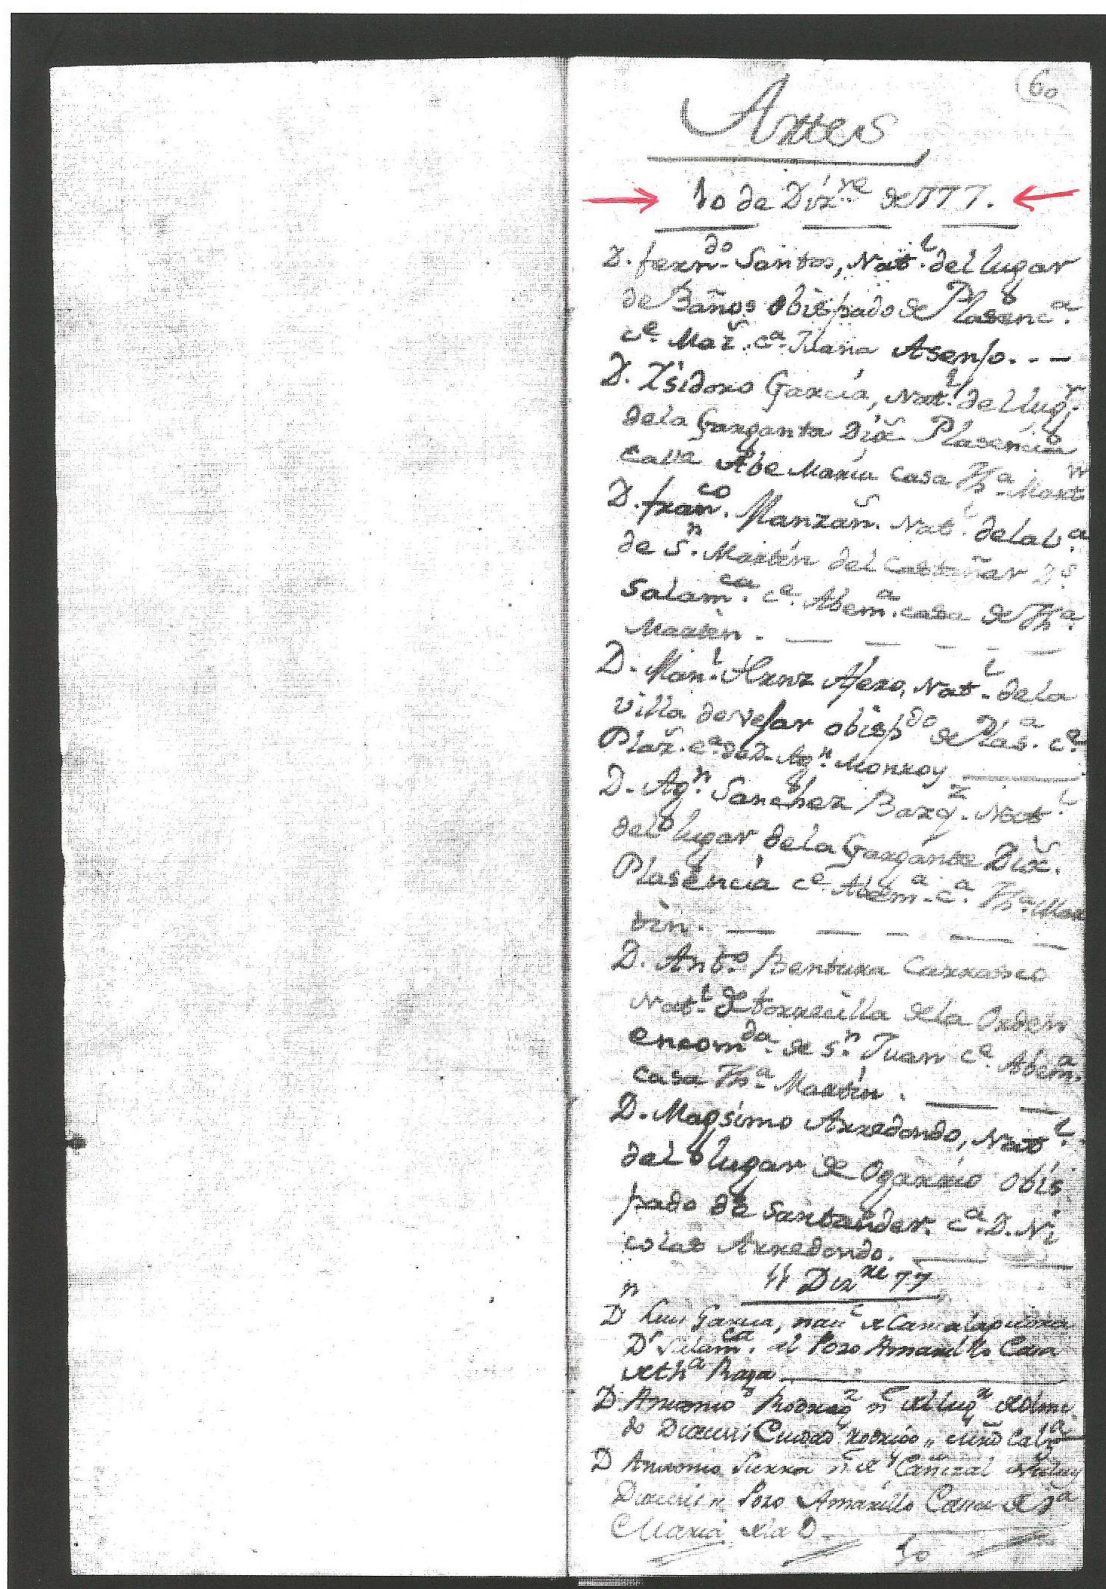 60
Artes
10 de Diz.re de 777.
D. fern.do Santos, Nat.l del lugar
de Baños obispado de Plasenc.a
c.e Maz.s c.a Juana Asenjo. - -
D. Isidoro García, Nat.l del lug.r
dela Garganta Dioc̃ Plasencia
calle Abe María casa Th.a Mart
D. fran.co Manzan. Nat.l dela v.a
de S.n Martín del Castañar D.s
Salam.ca c.e Abem.a casa de Th.a
Martín.
D. Man.l Hrnz Ajero, Nat.l dela
villa de Vejar obisp.do de Plas.a c.e
c.a de D. Ag.n Monroy
D. Ag.n Sanchez Barq.z Nat.l
del lugar dela Garganta Dioc̃.
Plasencia c.e Abem.a c.a Th.a Mar
tin.
D. Ant.o Bentura Carrasco
Nat.l de torrecilla dela Orden
encom.da de S.n Juan c.e Abem.a
casa Th.a Martín.
D. Magsimo Arredondo, Nat.l
del lugar de Ogarrio obis
pado de Santander. c.a D. Ni
colas Arredondo.
11 Diz.re 77
D.n Luis Garcia, de Cantalapiedra
D.s Salam.ca al Pozo Amarillo Casa
de th.a Raga
D Antonio Rodrig.z n.l del lug.r
do Ciudad Rodrigo
D Antonio Sierra n.l de Cañizal
Pozo Amarillo Casa de
Maria de la O
10